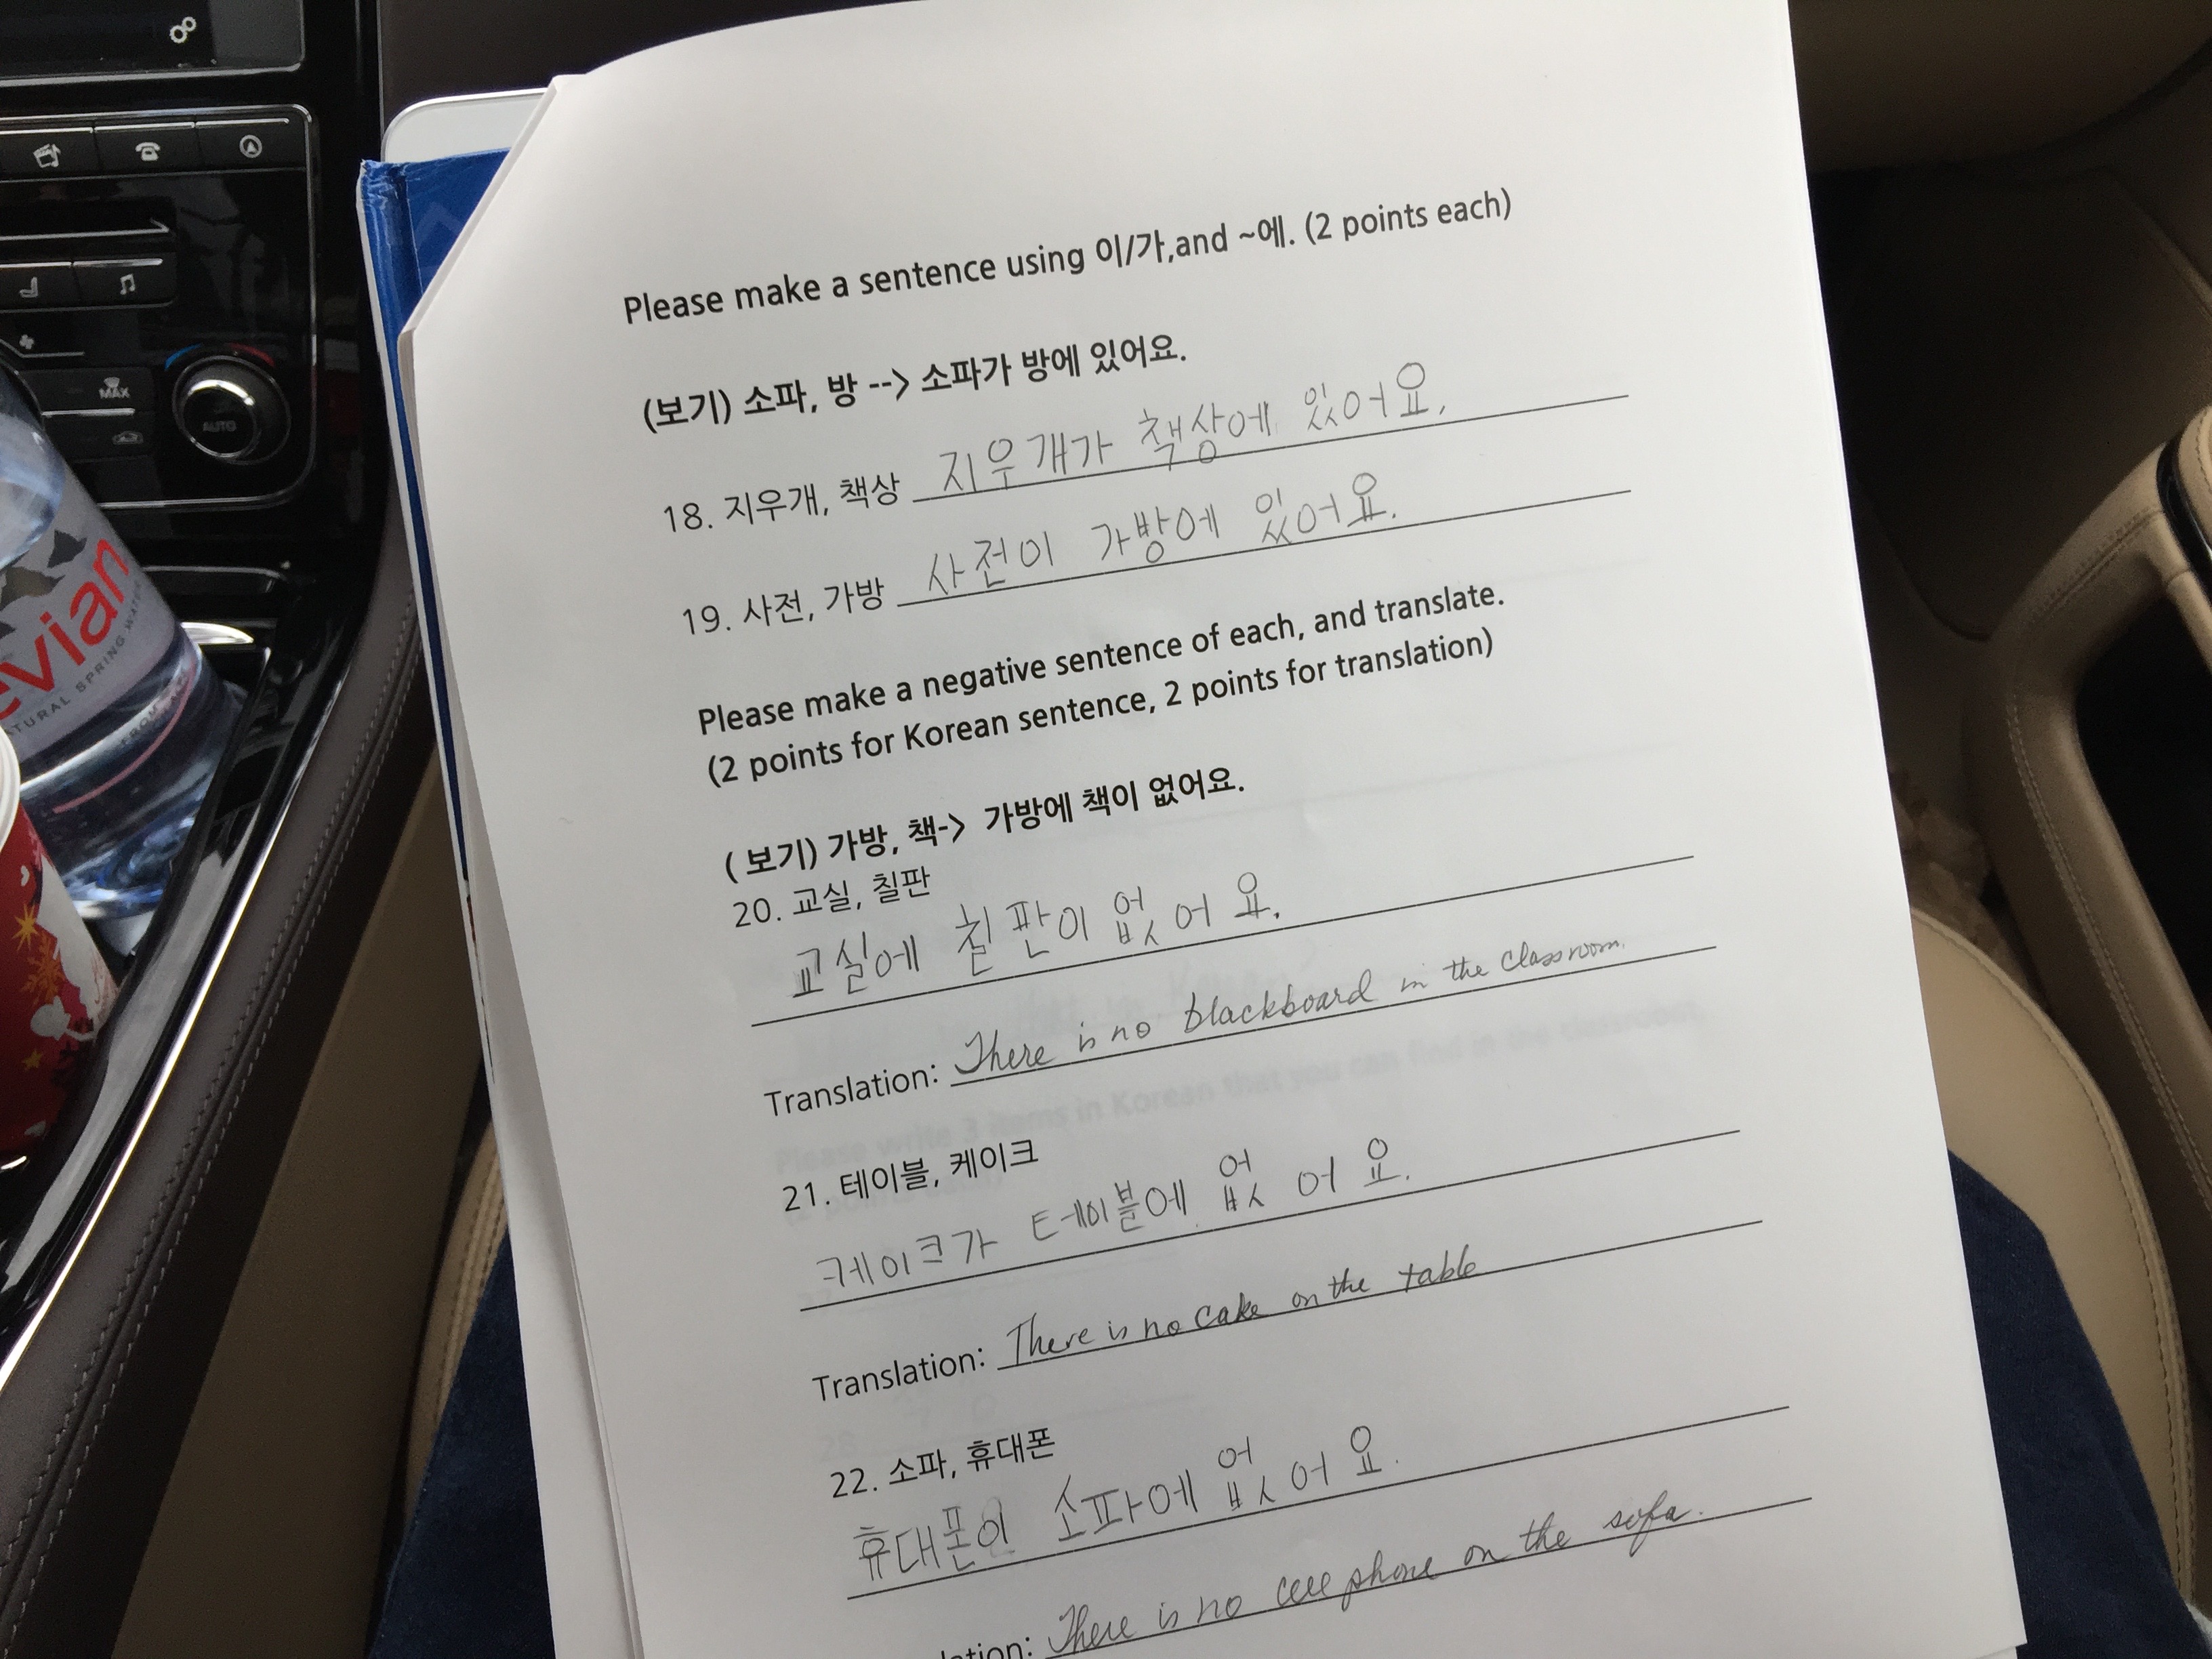 Please make a sentence using 이/가,and ~에. (2 points each)
(보기) 소파, 방 --> 소파가 방에 있어요.
18. 지우개, 책상 지우개가 책상에 있어요.
19. 사전, 가방 사전이 가방에 있어요.
Please make a negative sentence of each, and translate.
(2 points for Korean sentence, 2 points for translation)
( 보기) 가방, 책-> 가방에 책이 없어요.
20. 교실, 칠판
교실에 칠판이 없어요.
Translation: There is no blackboard in the classroom.
21. 테이블, 케이크
케이크가 테이블에 없어요.
Translation: There is no cake on the table
22. 소파, 휴대폰
휴대폰이 소파에 없어요.
lation: There is no cell phone on the sofa.
MAX
AUTO
evian
TURAL SPRING WATER